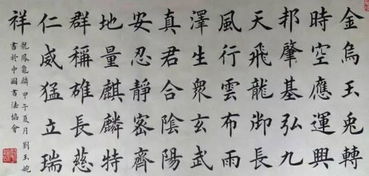 金烏玉兔轉
時空應運興
邦肇基弘九
天飛龍御長
風行雲布雨
澤生衆玄武
真君合陰陽
安忍靜密齊
地量麒麟特
群稱雄長慈
仁威猛立瑞
祥
甲午夏月 劉玉
書於中國書法協會